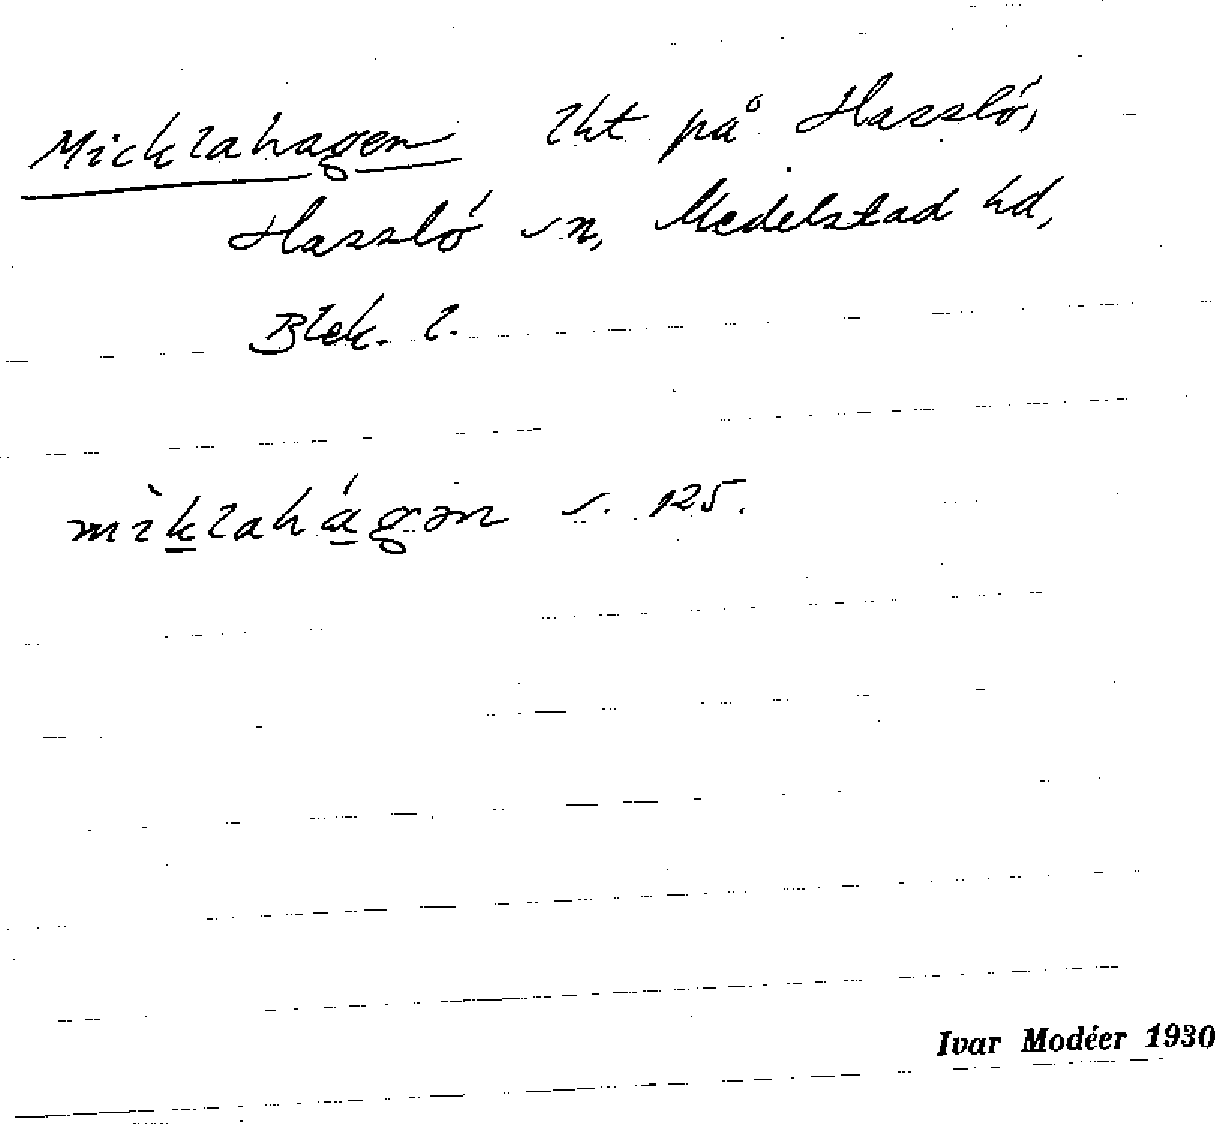 Micklahagen lht på Hasslö,
Hasslö sn, Medelstad hd,
Blek. l.
mìklahágən s. 125.
Ivar Modéer 1930